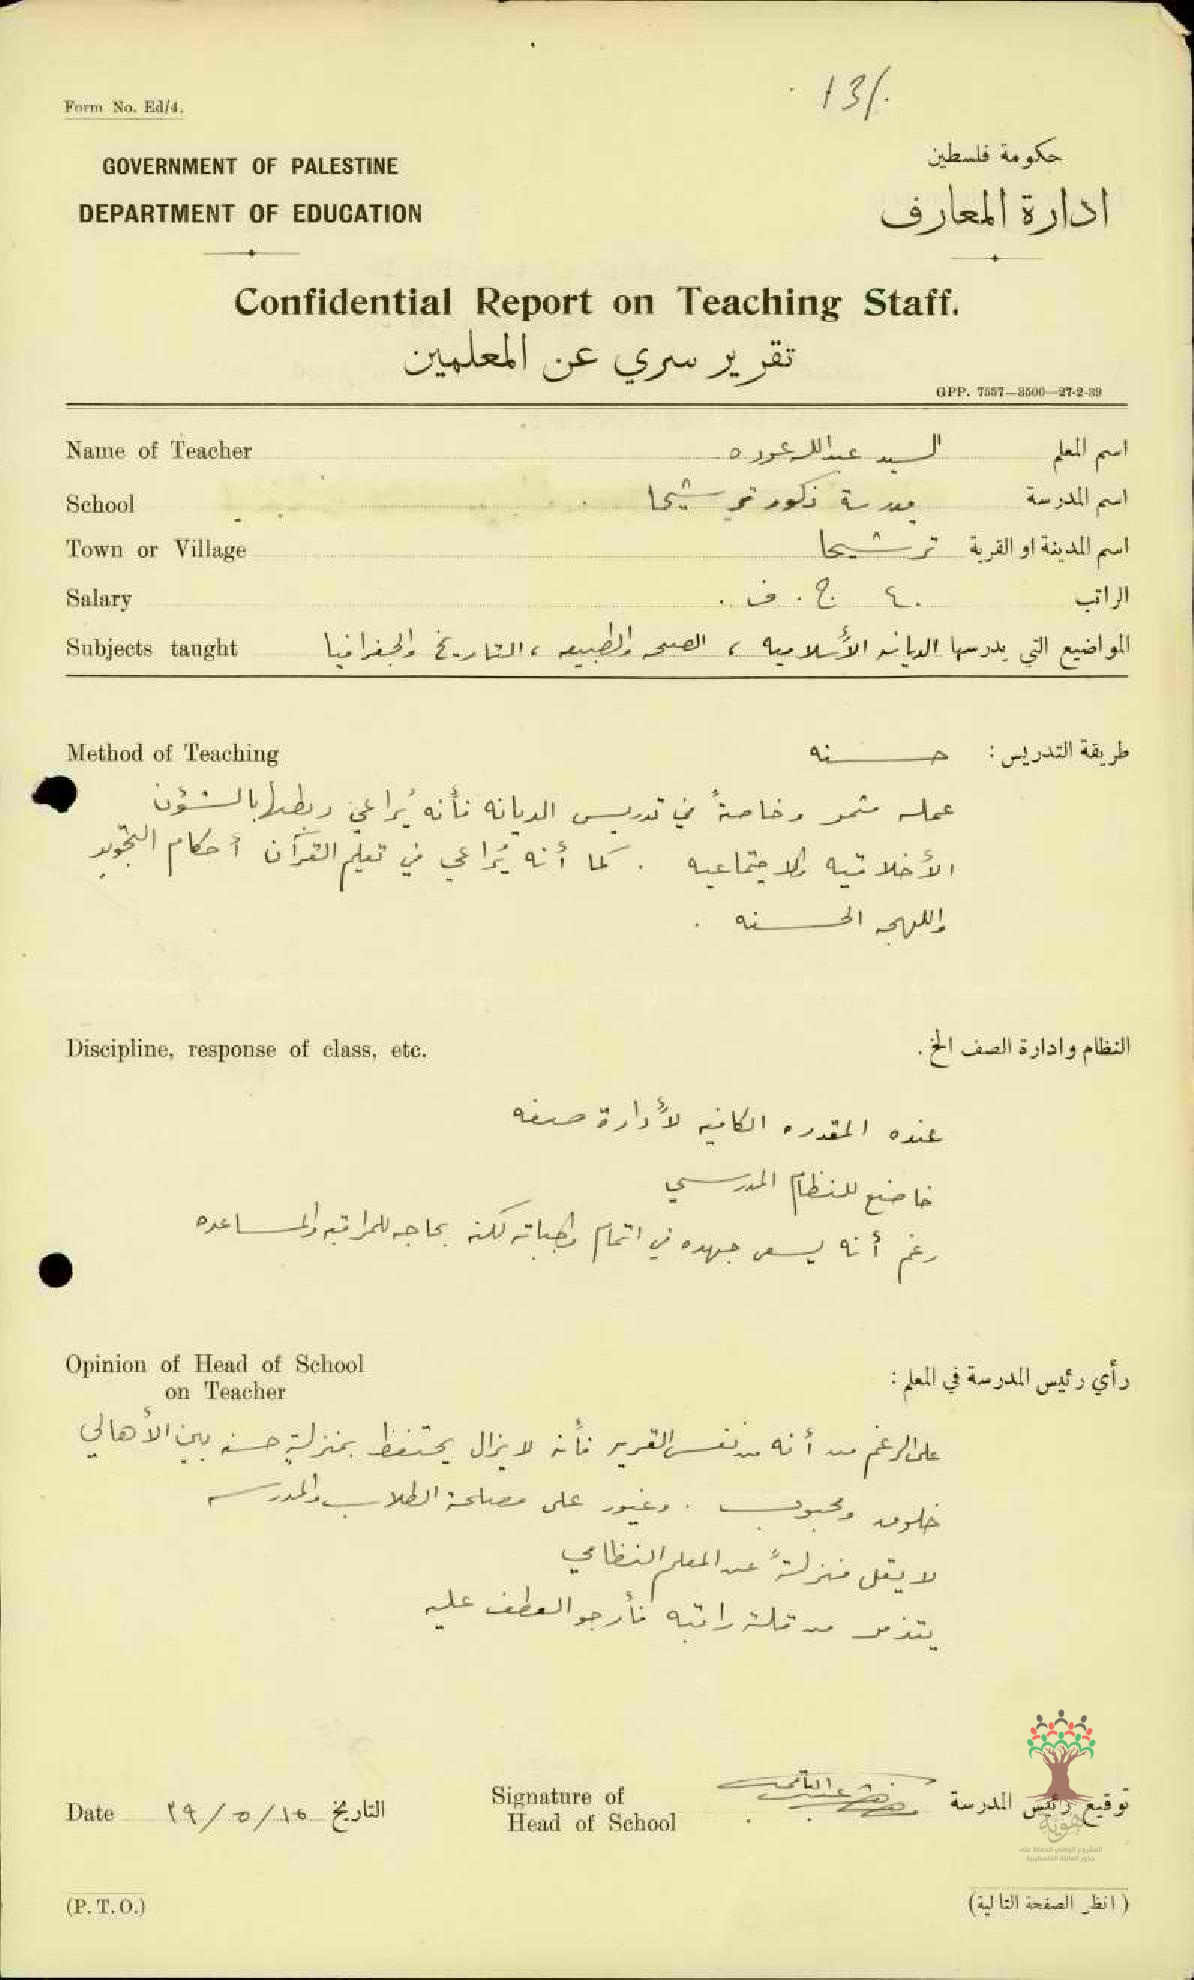 13/.
Form No. Ed/4.
GOVERNMENT OF PALESTINE
DEPARTMENT OF EDUCATION
حكومة فلسطين
ادارة المعارف
Confidential Report on Teaching Staff.
تقرير سري عن المعلمين
GPP. 7557—3500—27-2-39
Name of Teacher السيد عبدالله عوده اسم المعلم
School مدرسة ذكور ترشيحا اسم المدرسة
Town or Village ترشيحا اسم المدينة او القرية
Salary ٤٠ ج. ف. الراتب
Subjects taught المواضيع التي يدرسها الديانه الأسلاميه ، الصحه والطبيعه ، التاريخ والجغرافيا
Method of Teaching حسنه طريقة التدريس :
عمله مثمر وخاصةً في تدريس الديانه فأنه يُراعي ربطها بالشؤن
الأخلاقيه والاجتماعيه . كما أنه يُراعي في تعليم القرآن أحكام التجويد
واللهجه الحسنه .
Discipline, response of class, etc. النظام وادارة الصف الخ .
عنده المقدره الكافيه لأدارة صفه
خاضع للنظام المدرسي
رغم أنه يسعى جهده في اتمام واجباته لكنه بحاجه للمراقبه والمساعده
Opinion of Head of School
on Teacher
رأي رئيس المدرسة في المعلم :
على الرغم من أنه من نفس القريه فأنه لا يزال يحتفظ بمنزلةٍ حسنه بين الأهالي
خلوق ومحبوب . وغيور على مصلحة الطلاب والمدرسه
لا يقل منزلةً عن المعلم النظامي
يتذمر من قلة راتبه فأرجو العطف عليه
Date ١٥/٥/٣٩ التاريخ
Signature of
Head of School
توقيع رئيس المدرسة
هوية
المشروع الوطني للحفاظ على
جذور العائلة الفلسطينية
(P. T. O.) ( انظر الصفحة التالية)